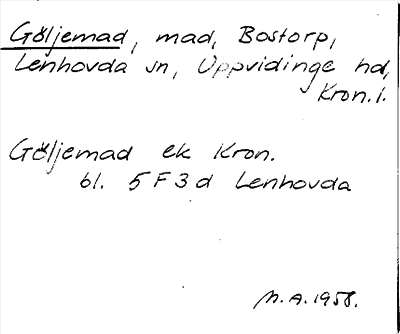 Göljemad, mad, Bostorp,
Lenhovda sn, Uppvidinge hd,
Kron. l.
Göljemad ek Kron.
bl. 5 F 3 d Lenhovda
M.A. 1958.